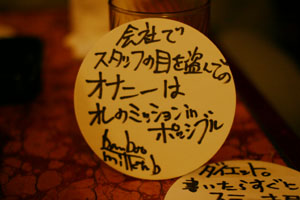 会社で
スタッフの目を盗んでの
オナニーは
オレのミッションin
ポッシブル
bamboo
milkcub
ダイエット。